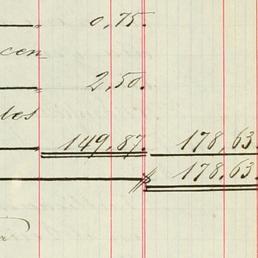 0,75.
cen
2,50.
149,87. 178,63.
178,63.